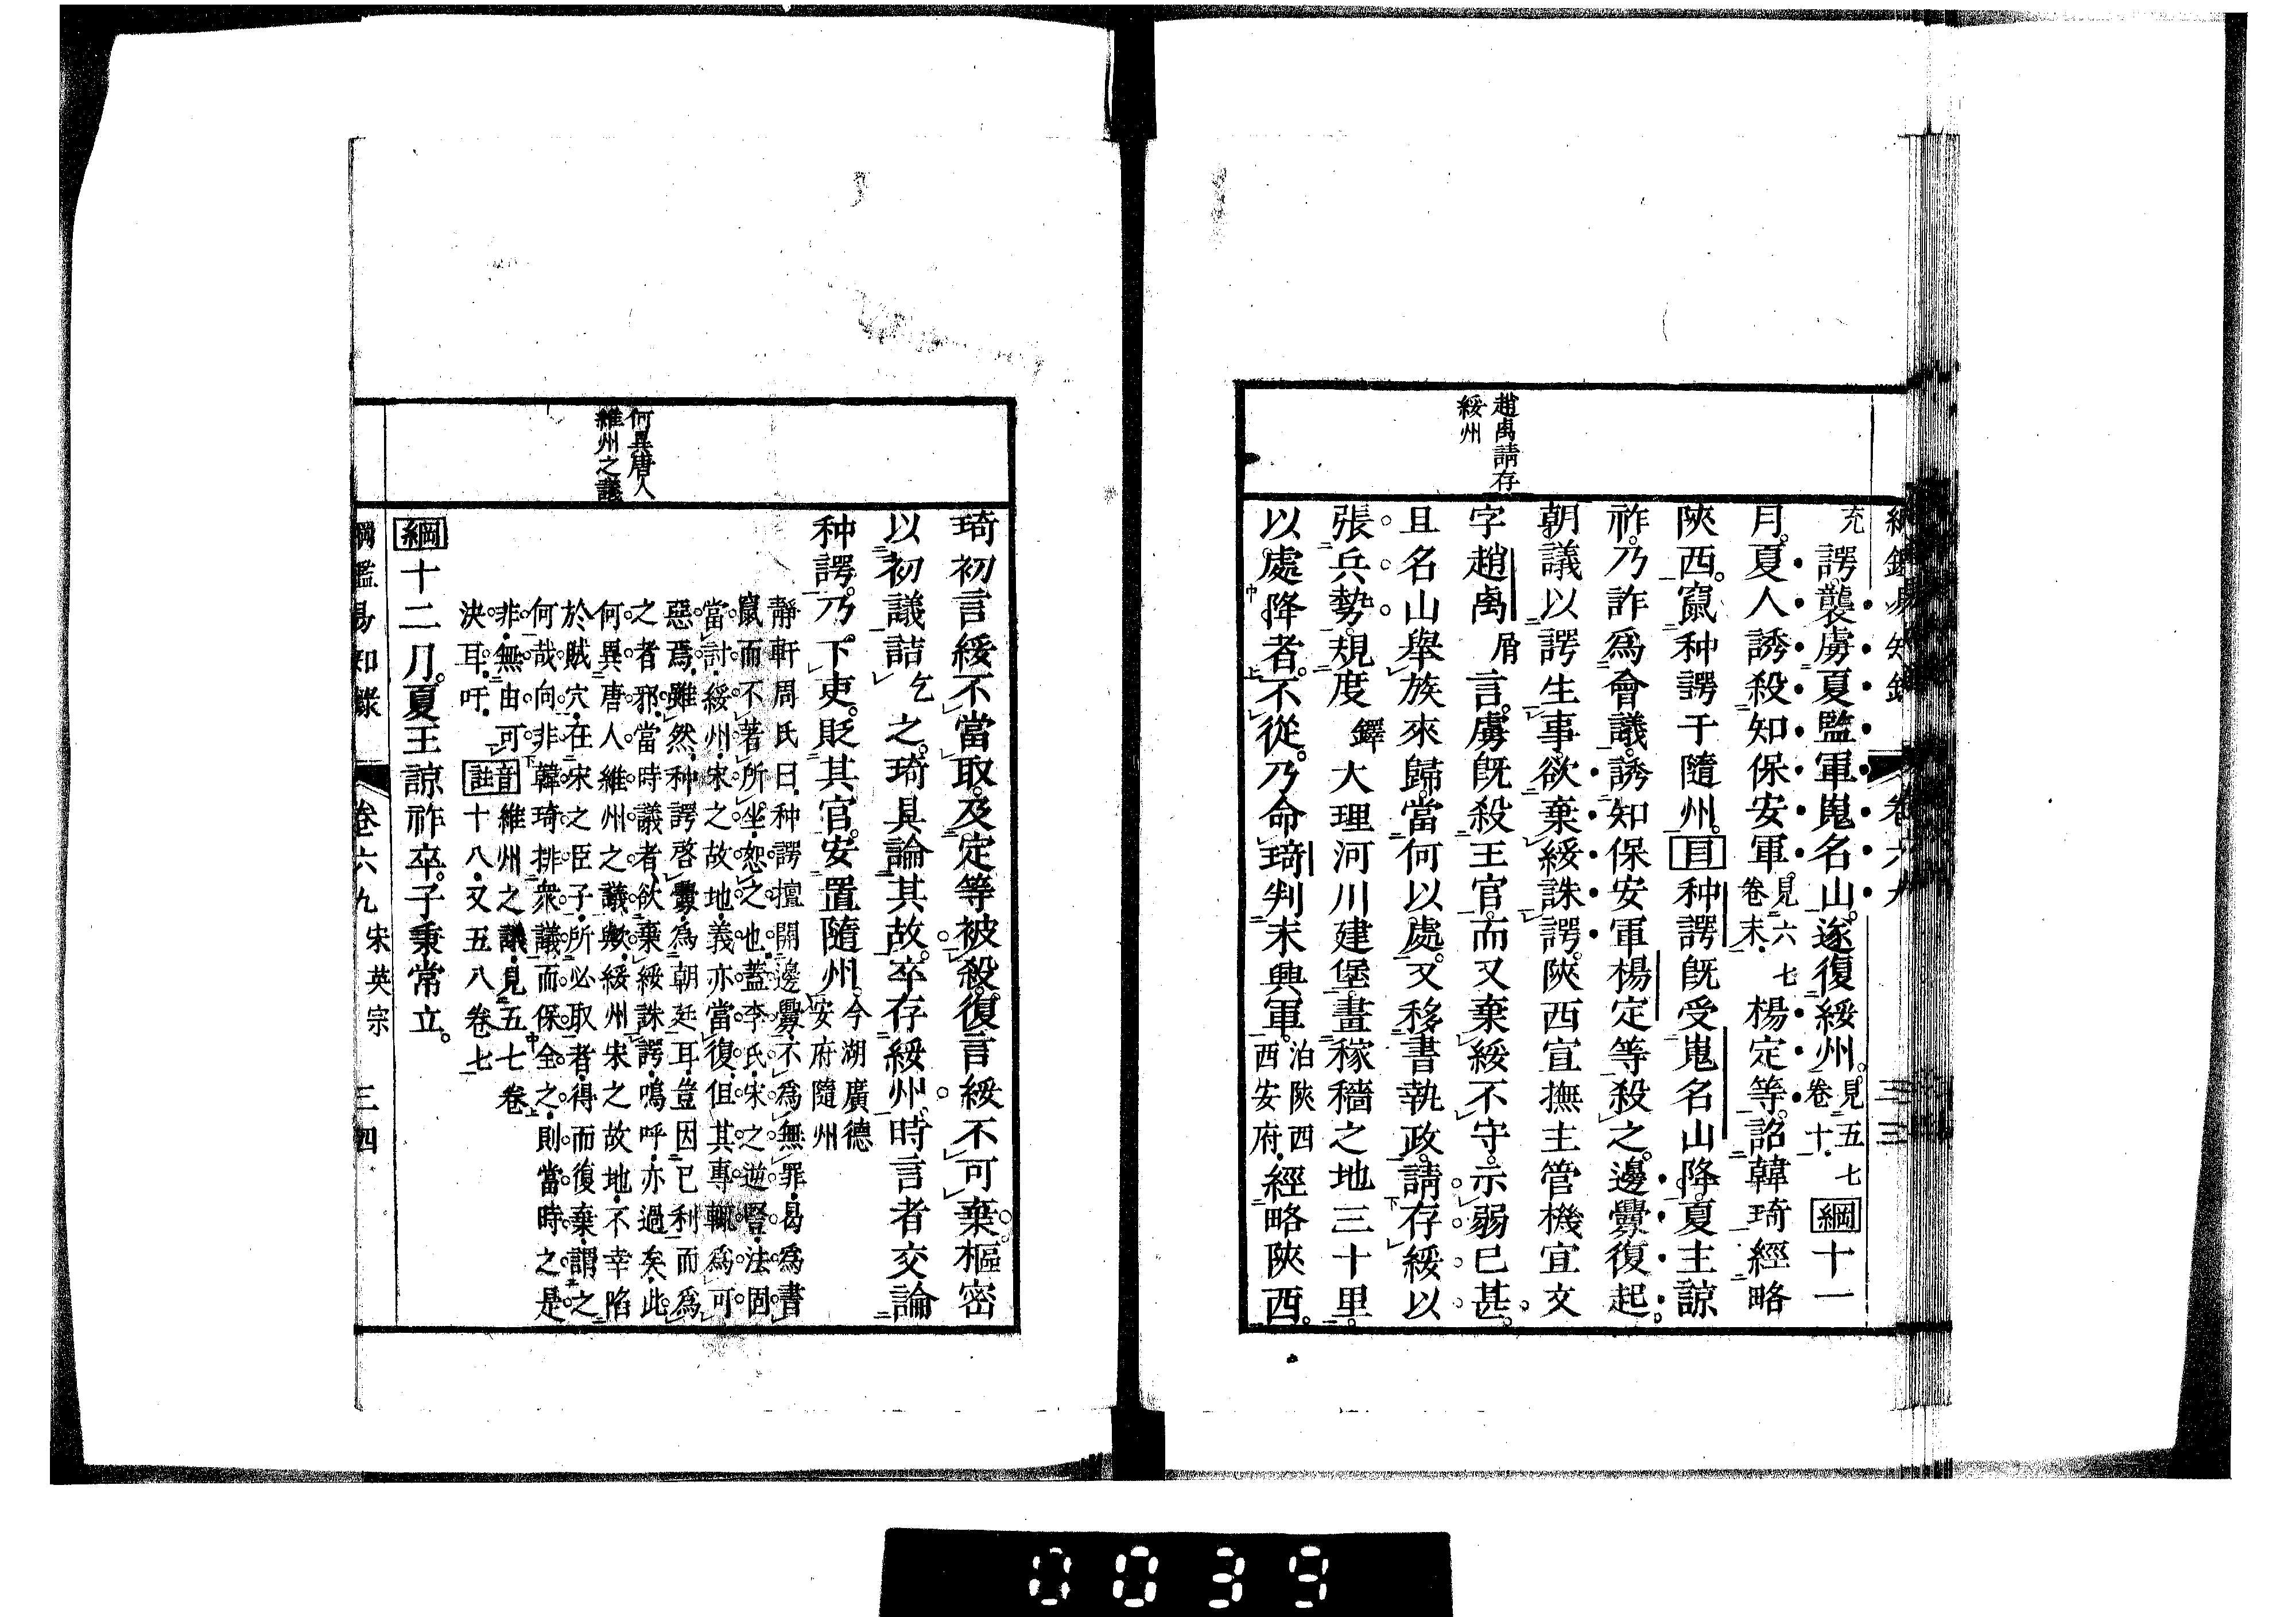 綱鑑易知錄 卷六九 三三
趙卨請存
綏州
充 諤襲虜夏監軍嵬名山。遂復綏州。見五七卷十。綱十一
月。夏人誘殺知保安軍見六七卷末。楊定等。詔韓琦經略
陝西。竄种諤于隨州。目种諤既受嵬名山降。夏主諒
祚。乃詐爲會議。誘知保安軍楊定等殺之。邊釁復起。
朝議以諤生事。欲棄綏誅諤。陝西宣撫主管機宜文
字趙卨屑言。虜既殺王官。而又棄綏不守。示弱已甚。
且名山舉族來歸。當何以處。又移書執政。請存綏以
張兵勢。規度鐸大理河川建堡。畫稼穡之地三十里。
以處降者。不從。乃命琦判末興軍。治陝西西安府。經略陝西。
何異唐人
維州之議
琦初言綏不當取。及定等被殺。復言綏不可棄。樞密
以初議詰乞之。琦具論其故。卒存綏州。時言者交論
种諤。乃下吏。貶其官。安置隨州。今湖廣德安府隨州
靜軒周氏曰。种諤擅開邊釁。不爲無罪。曷爲書
竄而不著所坐。恕之也。蓋李氏。宋之逆豎。法固
當討。綏州。宋之故地。義亦當復。但其專輒爲可
惡焉。雖然。种諤啓釁。爲朝廷耳。豈因已利而爲
之者邪。當時議者。欲棄綏誅諤。嗚呼。亦過矣。此
何異唐人維州之議歟。綏州宋之故地。不幸陷
於賊穴。在宋之臣子。所必取者。得而復棄。謂之
何哉。向非韓琦排衆議而保全之。則當時之是
非。無由可 音註維州之議。見五七卷
決耳。吁。十八。又五八卷七
綱十二月。夏王諒祚卒。子秉常立。
綱鑑易知錄 卷六九 宋英宗 三四
0039